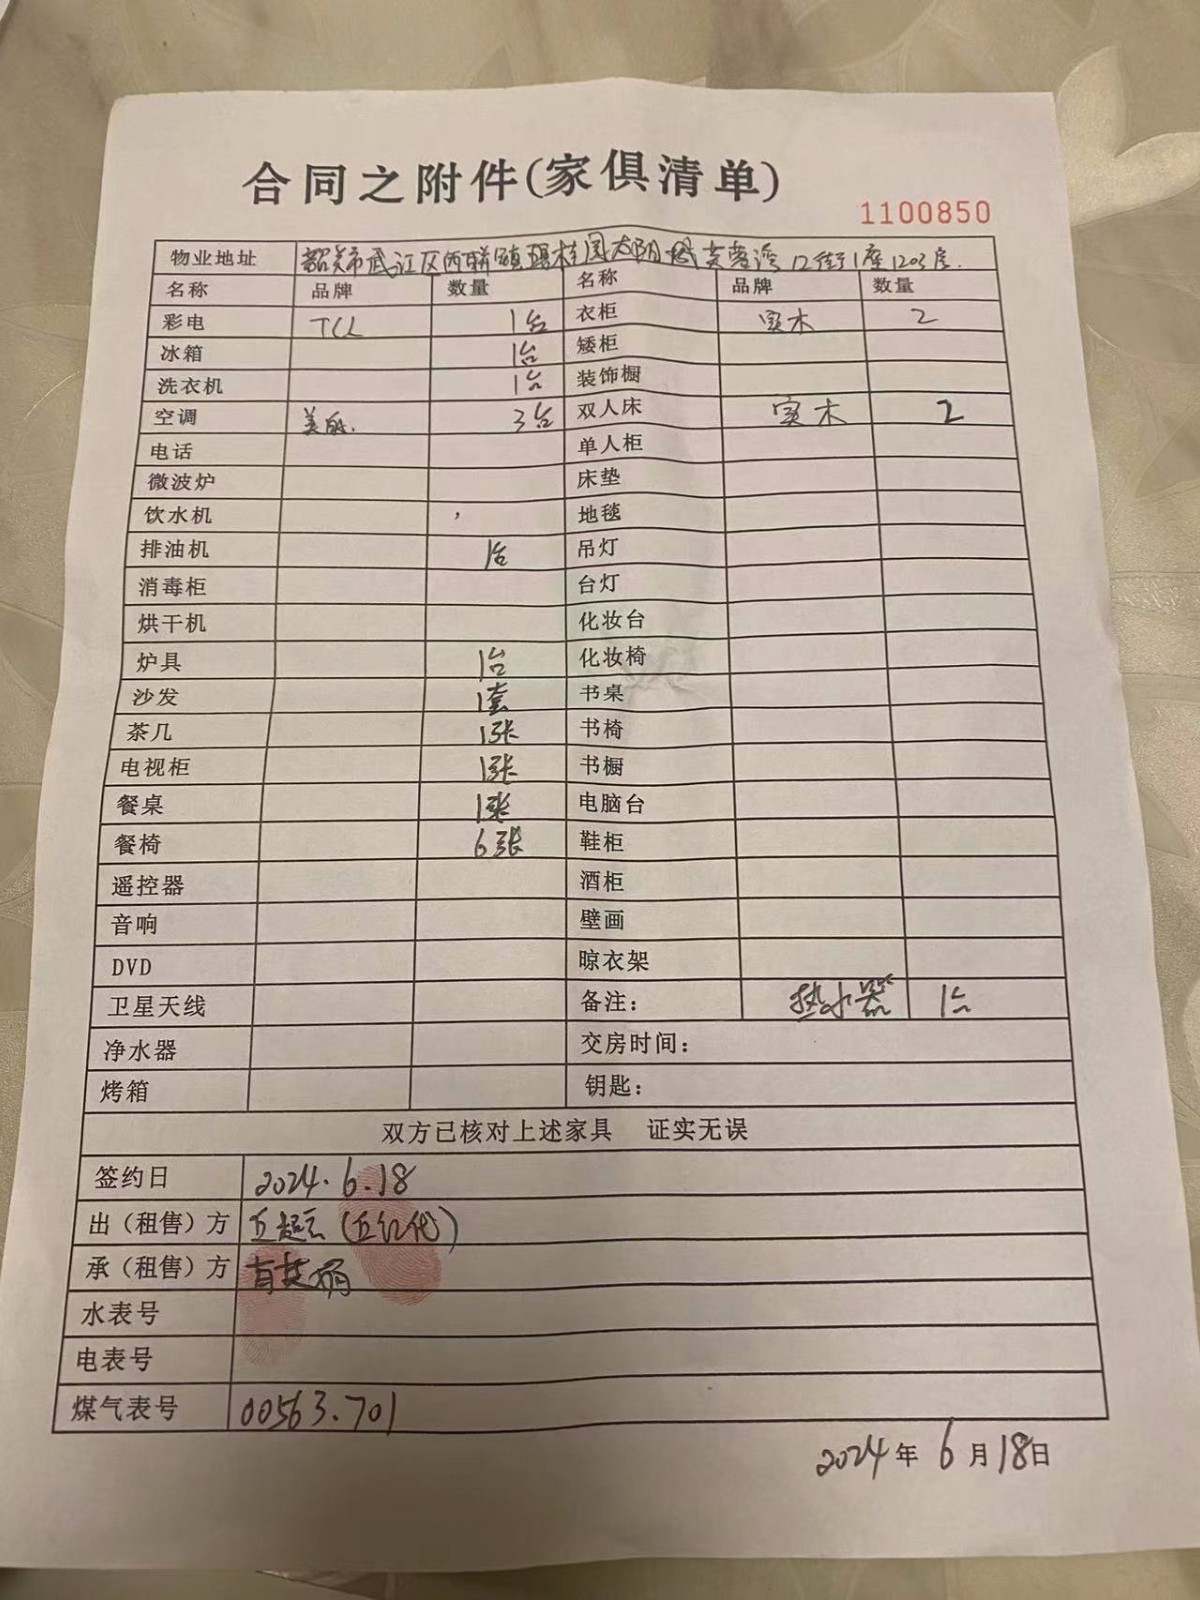 合同之附件(家俱清单)
1100850
物业地址 韶关市武江区西联镇碧桂园太阳城芙蓉湾12街1座1203房.
名称 品牌 数量 名称 品牌 数量
彩电 TCL 1台 衣柜 实木 2
冰箱 1台 矮柜
洗衣机 1台 装饰橱
空调 美的. 3台 双人床 实木 2
电话 单人柜
微波炉 床垫
饮水机 地毯
排油机 1台 吊灯
消毒柜 台灯
烘干机 化妆台
炉具 1台 化妆椅
沙发 1套 书桌
茶几 1张 书椅
电视柜 1张 书橱
餐桌 1张 电脑台
餐椅 6张 鞋柜
遥控器 酒柜
音响 壁画
DVD 晾衣架
卫星天线 备注： 热水器 1台
净水器 交房时间：
烤箱 钥匙：
双方已核对上述家具 证实无误
签约日 2024.6.18
出（租售）方
承（租售）方
水表号
电表号
煤气表号 00563.701
2024年6月18日